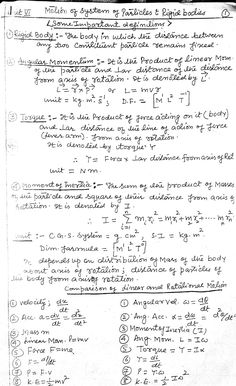 Unit VI Motion of System of Particles & Rigid bodies ①
(Some Important definitions)
① Rigid Body :- The body in which the distance between
any two constituent particle remains fixed.
② Angular Momentum :- It is the Product of Linear Mom.
of the particle and Lar distance of the distance
from axis of rotation. It is denoted by L
or L = mvr
unit = kg. m². s⁻¹, D.F. = [M¹ L² T⁻¹]
③ Torque :- It is the Product of force acting on it (body)
and Lar distance of the line of action of force
(lever arm) from axis of rotation.
It is denoted by torque τ
∴ τ = Force x Lar distance from axis of Rot
unit = N.m.
④ Moment of Inertia :- The sum of the product of Masses
of the particle and square of their distance from axis of
Rotation. It is denoted by I
unit :- C.G.S. System = g. cm², S.I = kg. m²
Dim. formula = [M¹ L² T⁰]
depends upon distribution of Mass of the body
about axis of rotation; distance of particles of
the body from axis of rotation
Comparison of Linear and Rotational Motion
① velocity; dx/dt
① Angular vel. ω = dθ/dt
② Acc. a = dv/dt = d²x/dt²
② Ang. Acc. α = dω/dt = d²θ/dt²
③ Mass m
③ Moment of Inertia (I)
④ Linear Mom. P = mv
④ Ang. Mom. L = Iω
⑤ Force F = ma
⑤ Torque = Iα
⑦ P = F.v
⑦ P = τω
⑧ K.E = ½ mv²
⑧ K.E = ½ Iω²